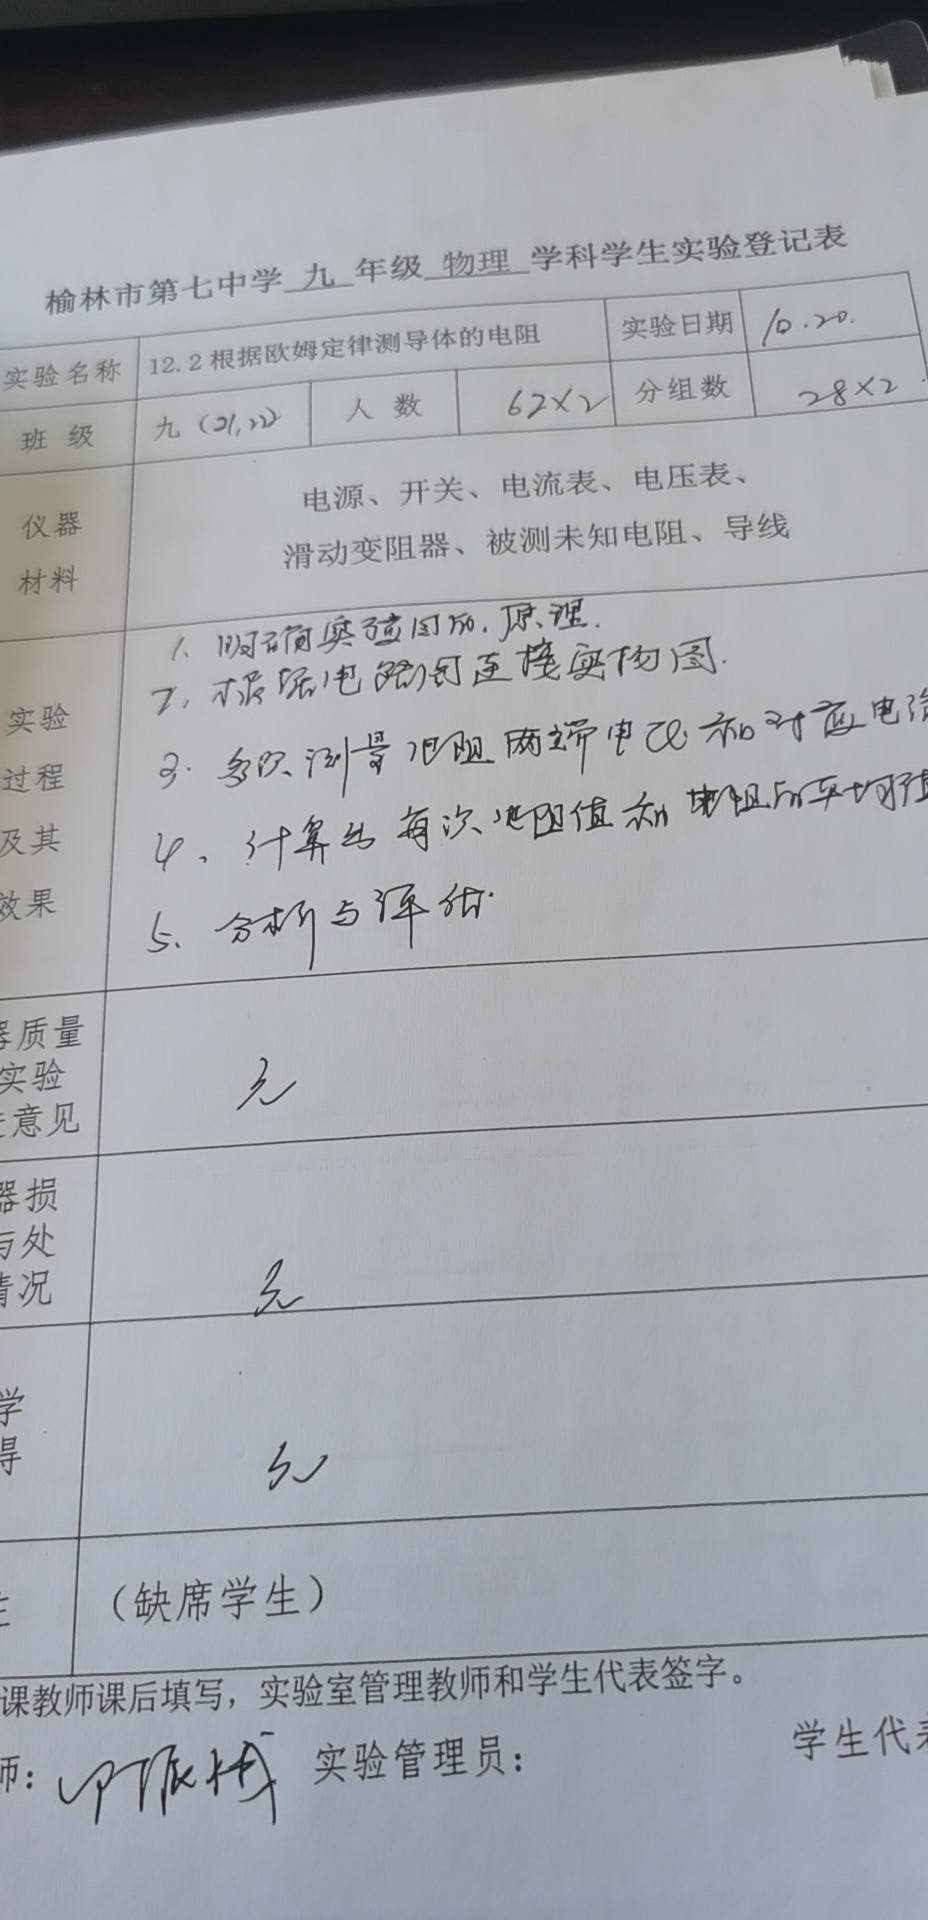 榆林市第七中学 九 年级 物理 学科学生实验登记表
实验名称 12.2根据欧姆定律测导体的电阻 实验日期 10.20.
班 级 九（21,22） 人 数 62×2 分组数 28×2
仪器
材料
电源、开关、电流表、电压表、
滑动变阻器、被测未知电阻、导线
实验
过程
及其
效果
1、明确实验目的、原理.
2、根据电路图连接实物图.
3. 多次测量电阻两端电压和对应电流
4、计算出每次电阻值和电阻的平均值
5、分析与评估.
器质量
实验
意见
无
器损
与处
情况
无
学
得
无
（缺席学生）
课教师课后填写，实验室管理教师和学生代表签字。
师： 实验管理员： 学生代表